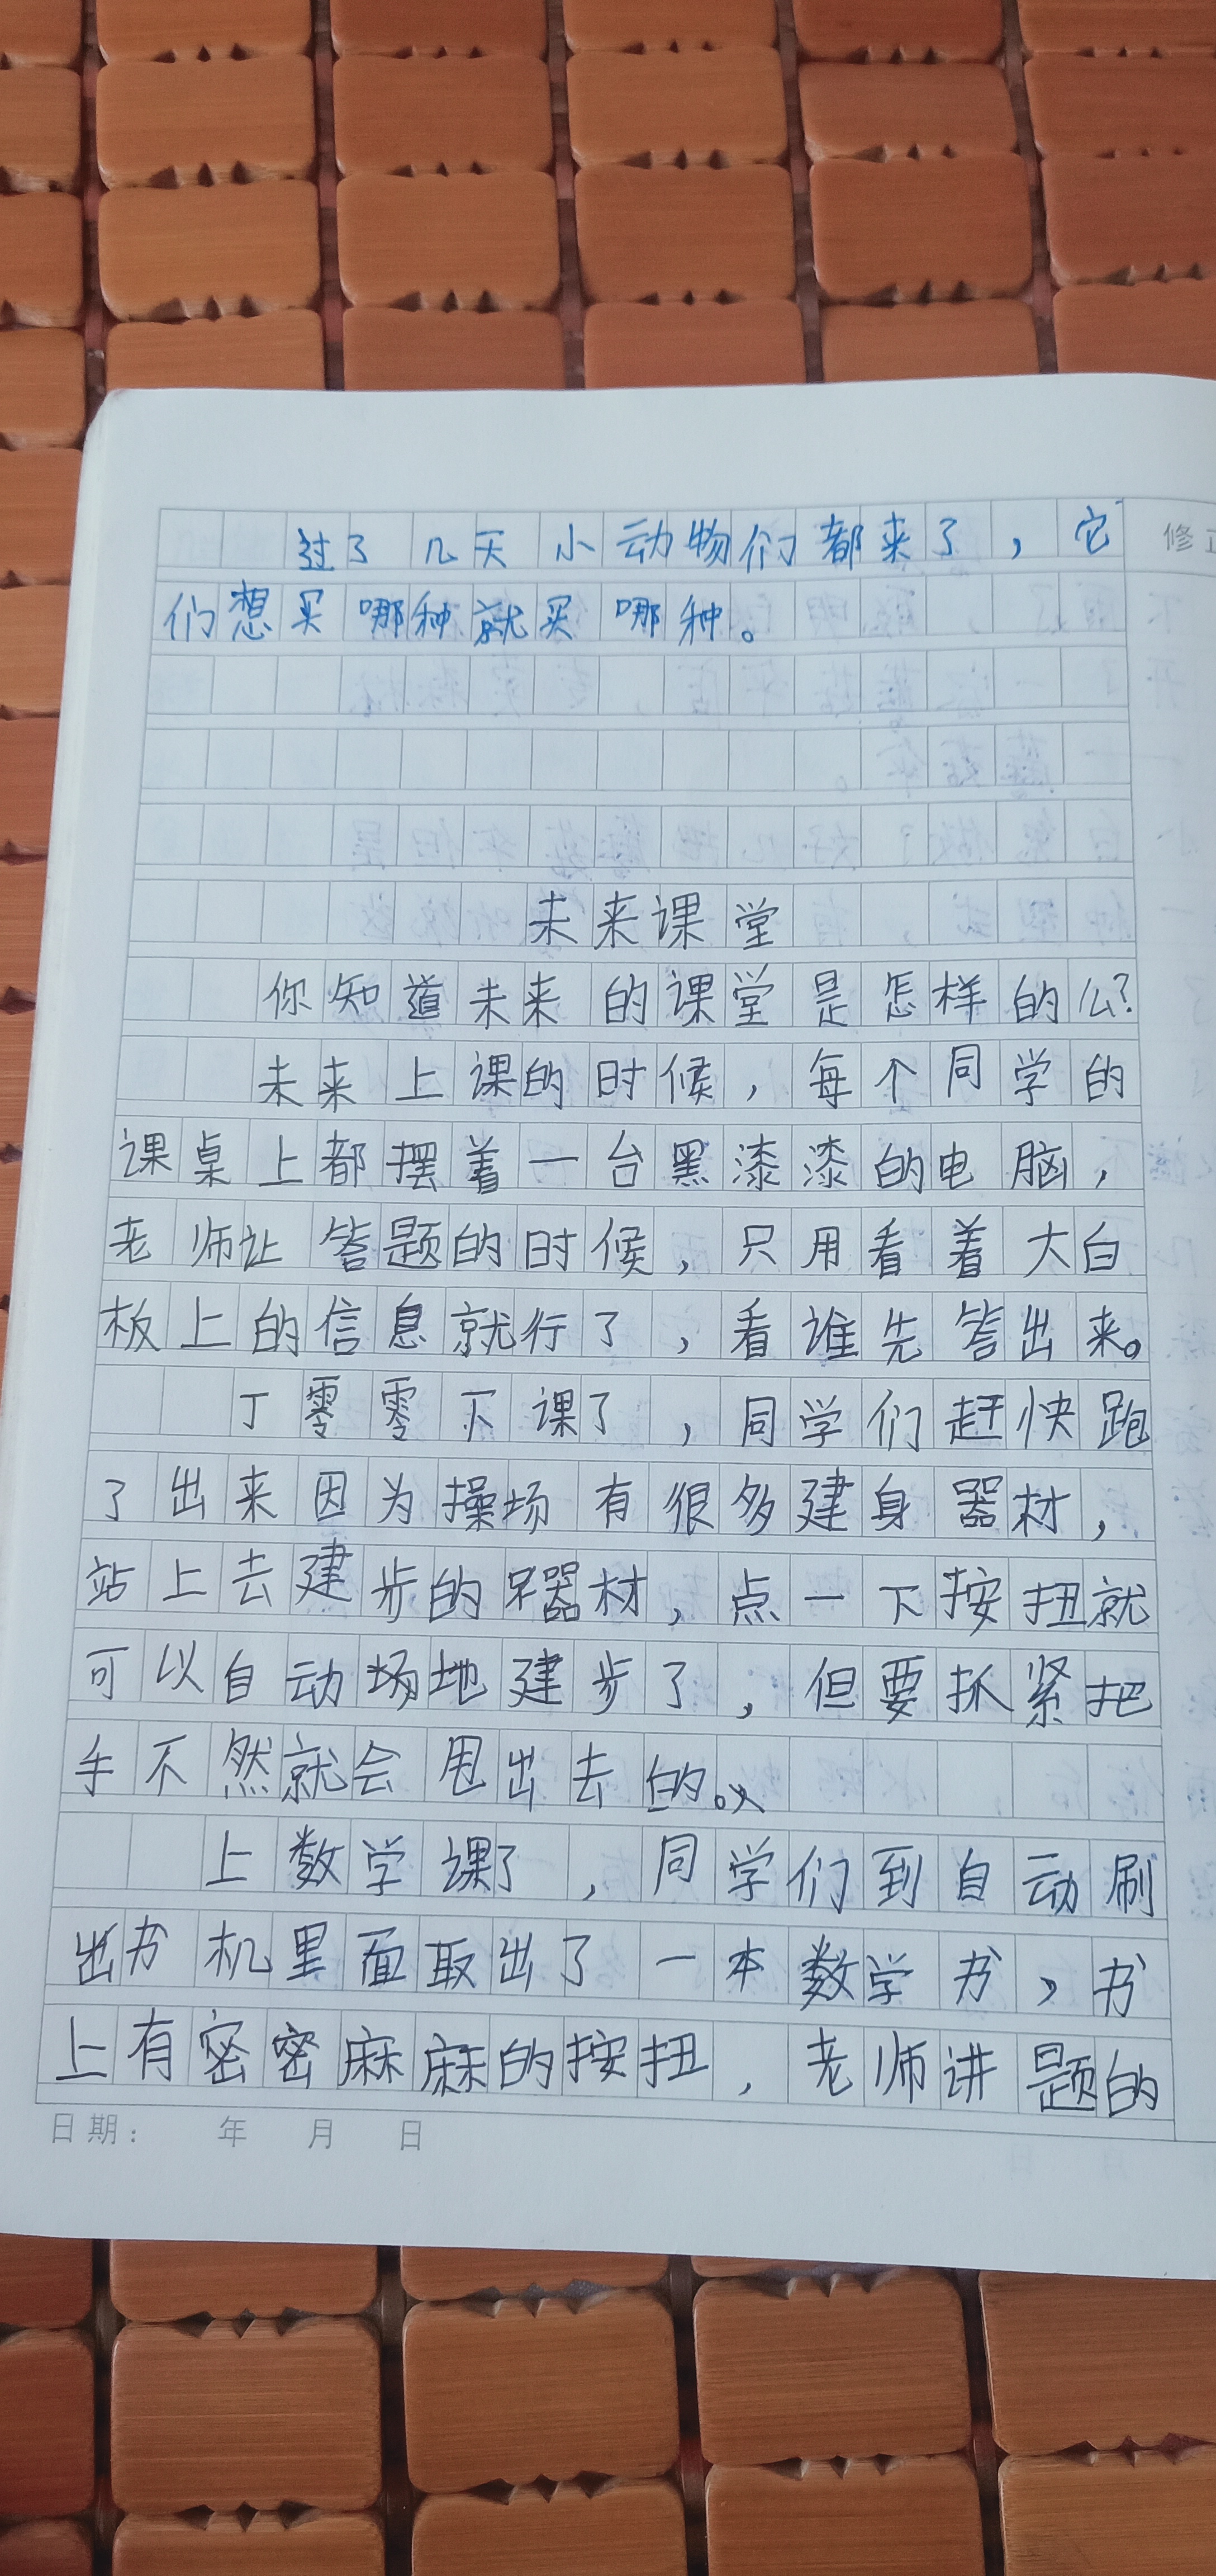 过了几天小动物们都来了，它
们想买哪种就买哪种。
修正
未来课堂
你知道未来的课堂是怎样的么？
未来上课的时候，每个同学的
课桌上都摆着一台黑漆漆的电脑，
老师让答题的时候，只用看着大白
板上的信息就行了，看谁先答出来。
丁零零下课了，同学们赶快跑
了出来因为操场有很多建身器材，
站上去建步的器材，点一下按扭就
可以自动场地建步了，但要抓紧把
手不然就会甩出去的。
上数学课了，同学们到自动刷
出书机里面取出了一本数学书，书
上有密密麻麻的按扭，老师讲题的
日期：　年　月　日